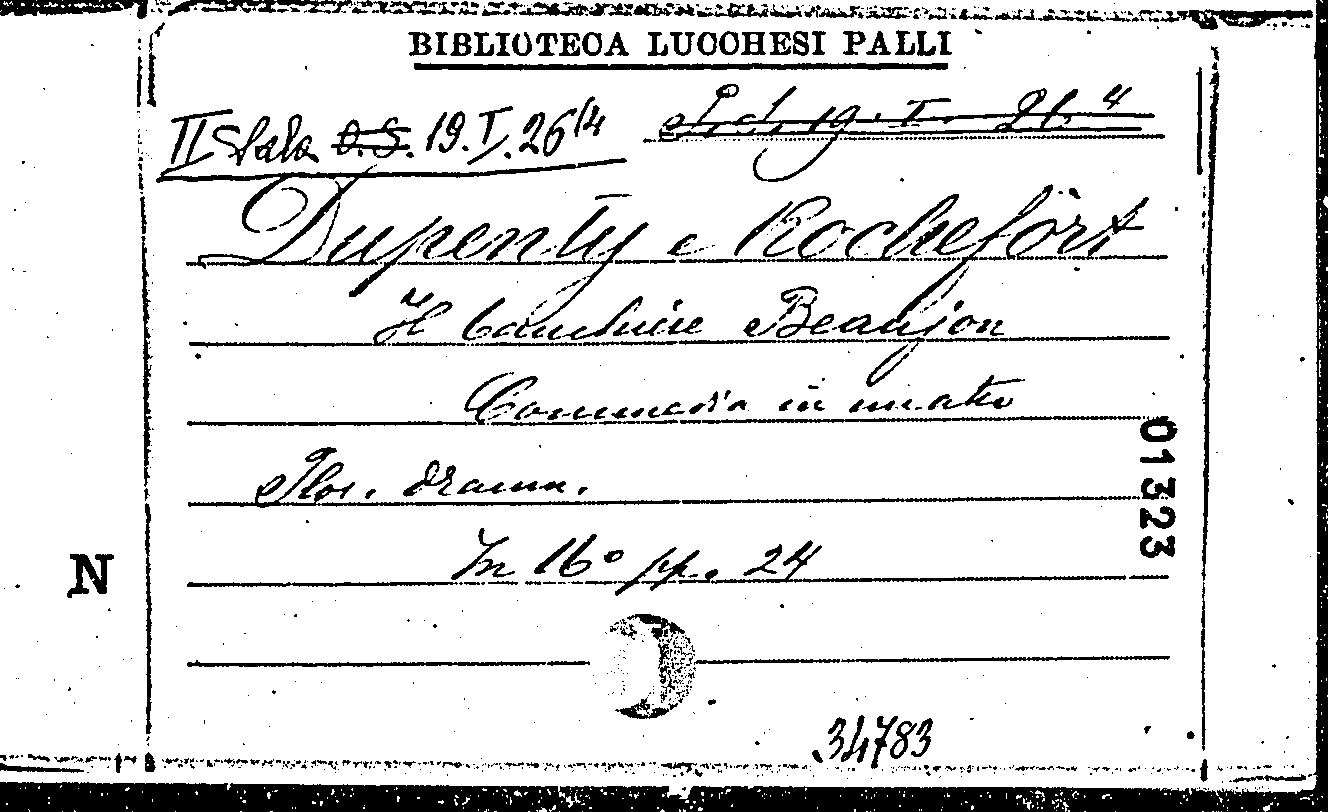 BIBLIOTECA LUCCHESI PALLI
II Sala O.S. 19.T.26/4
19. I. 26.4
Dupenty e Rochefort
Il Beaujon
Commedia in un atto
Flor. dramm.
In 16° pp. 24
01323
N
34783